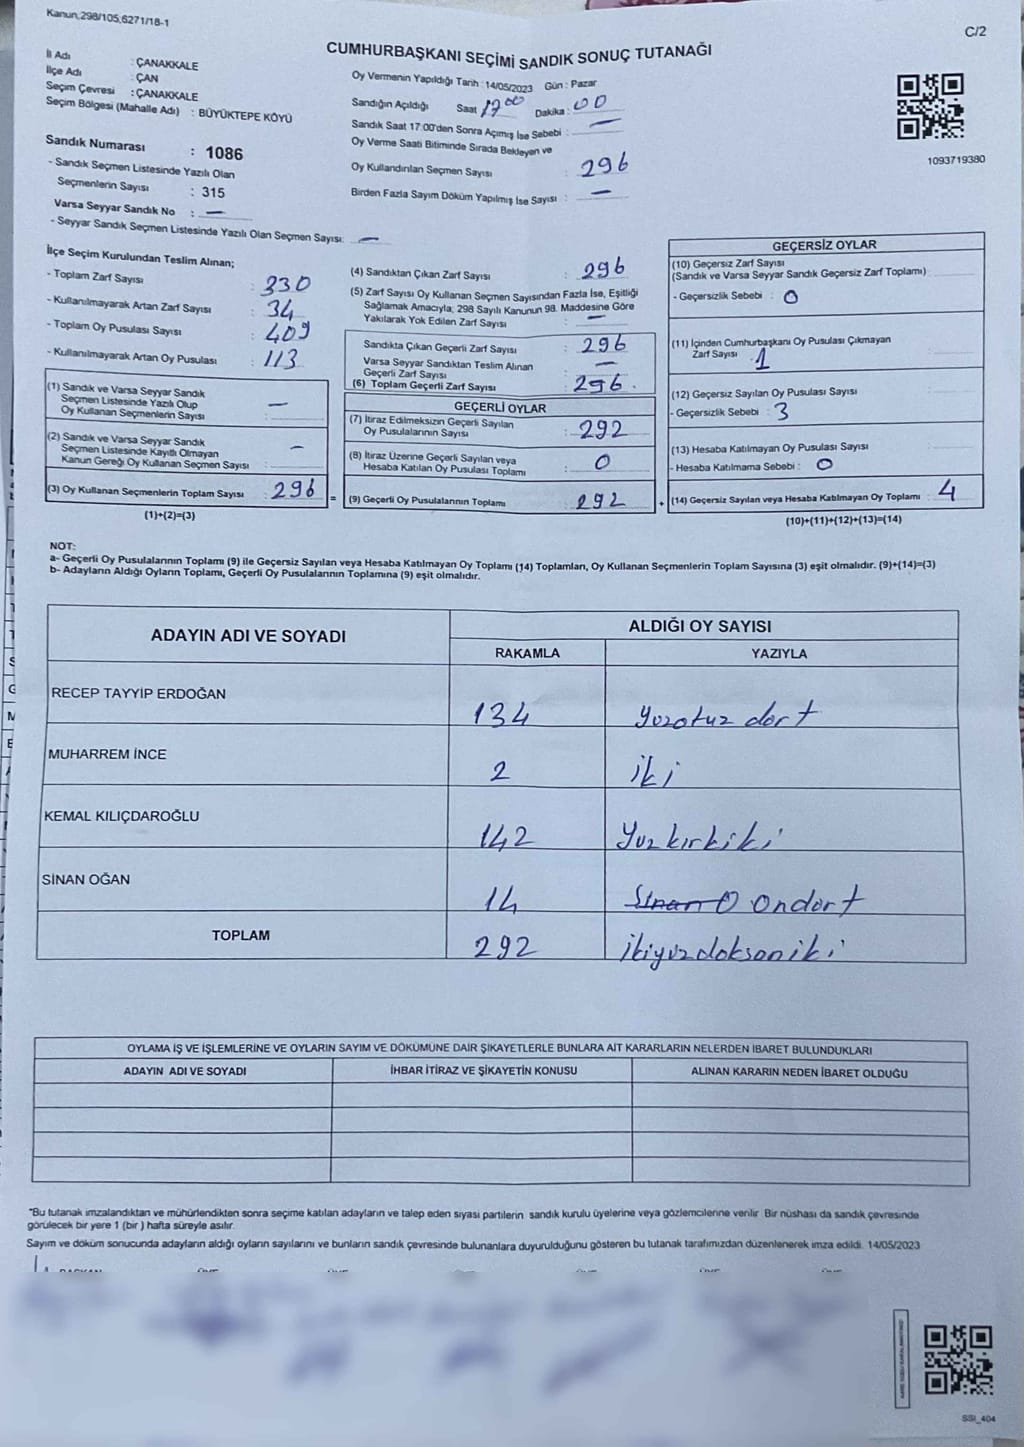 Kanun,298/105,6271/18-1
C/2
CUMHURBAŞKANI SEÇİMİ SANDIK SONUÇ TUTANAĞI
İl Adı : ÇANAKKALE
İlçe Adı : ÇAN
Seçim Çevresi : ÇANAKKALE
Seçim Bölgesi (Mahalle Adı) : BÜYÜKTEPE KÖYÜ
Sandık Numarası : 1086
- Sandık Seçmen Listesinde Yazılı Olan
Seçmenlerin Sayısı : 315
Varsa Seyyar Sandık No : —
- Seyyar Sandık Seçmen Listesinde Yazılı Olan Seçmen Sayısı: —
Oy Vermenin Yapıldığı Tarih : 14/05/2023 Gün : Pazar
Sandığın Açıldığı Saat 17 00 Dakika : 00
Sandık Saat 17:00'den Sonra Açımış İse Sebebi : —
Oy Verme Saati Bitiminde Sırada Bekleyen ve
Oy Kullandırılan Seçmen Sayısı : 296
Birden Fazla Sayım Döküm Yapılmış İse Sayısı : —
1093719380
İlçe Seçim Kurulundan Teslim Alınan;
- Toplam Zarf Sayısı : 330
- Kullanılmayarak Artan Zarf Sayısı : 34
- Toplam Oy Pusulası Sayısı : 409
- Kullanılmayarak Artan Oy Pusulası : 113
(1) Sandık ve Varsa Seyyar Sandık
Seçmen Listesinde Yazılı Olup
Oy Kullanan Seçmenlerin Sayısı : —
(2) Sandık ve Varsa Seyyar Sandık
Seçmen Listesinde Kayıtlı Olmayan
Kanun Gereği Oy Kullanan Seçmen Sayısı : —
(3) Oy Kullanan Seçmenlerin Toplam Sayısı : 296 =
(1)+(2)=(3)
(4) Sandıktan Çıkan Zarf Sayısı : 296
(5) Zarf Sayısı Oy Kullanan Seçmen Sayısından Fazla İse, Eşitliği
Sağlamak Amacıyla, 298 Sayılı Kanunun 98. Maddesine Göre
Yakılarak Yok Edilen Zarf Sayısı : —
Sandıkta Çıkan Geçerli Zarf Sayısı : 296
Varsa Seyyar Sandıktan Teslim Alınan
Geçerli Zarf Sayısı : —
(6) Toplam Geçerli Zarf Sayısı : 296.
GEÇERLİ OYLAR
(7) İtiraz Edilmeksizin Geçerli Sayılan
Oy Pusulalarının Sayısı : 292
(8) İtiraz Üzerine Geçerli Sayılan veya
Hesaba Katılan Oy Pusulası Toplamı : 0
(9) Geçerli Oy Pusulalarının Toplamı : 292 +
GEÇERSİZ OYLAR
(10) Geçersiz Zarf Sayısı
(Sandık ve Varsa Seyyar Sandık Geçersiz Zarf Toplamı) :
- Geçersizlik Sebebi : 0
(11) İçinden Cumhurbaşkanı Oy Pusulası Çıkmayan
Zarf Sayısı 1
(12) Geçersiz Sayılan Oy Pusulası Sayısı :
- Geçersizlik Sebebi : 3
(13) Hesaba Katılmayan Oy Pusulası Sayısı
- Hesaba Katılmama Sebebi : 0
(14) Geçersiz Sayılan veya Hesaba Katılmayan Oy Toplamı : 4
(10)+(11)+(12)+(13)=(14)
NOT:
a- Geçerli Oy Pusulalarının Toplamı (9) ile Geçersiz Sayılan veya Hesaba Katılmayan Oy Toplamı (14) Toplamları, Oy Kullanan Seçmenlerin Toplam Sayısına (3) eşit olmalıdır. (9)+(14)=(3)
b- Adayların Aldığı Oyların Toplamı, Geçerli Oy Pusulalarının Toplamına (9) eşit olmalıdır.
ADAYIN ADI VE SOYADI
ALDIĞI OY SAYISI
RAKAMLA YAZIYLA
RECEP TAYYİP ERDOĞAN 134 Yuzotuz dort
MUHARREM İNCE 2 iki
KEMAL KILIÇDAROĞLU 142 Yuz kırkiki
SİNAN OĞAN 14 Sınan O Ondort
TOPLAM 292 ikiyuzdoksaniki
OYLAMA İŞ VE İŞLEMLERİNE VE OYLARIN SAYIM VE DÖKÜMÜNE DAİR ŞİKAYETLERLE BUNLARA AİT KARARLARIN NELERDEN İBARET BULUNDUKLARI
ADAYIN ADI VE SOYADI İHBAR İTİRAZ VE ŞİKAYETİN KONUSU ALINAN KARARIN NEDEN İBARET OLDUĞU
*Bu tutanak imzalandıktan ve mühürlendikten sonra seçime katılan adayların ve talep eden siyasi partilerin sandık kurulu üyelerine veya gözlemcilerine verilir. Bir nüshası da sandık çevresinde
görülecek bir yere 1 (bir ) hafta süreyle asılır.
Sayım ve döküm sonucunda adayların aldığı oyların sayılarını ve bunların sandık çevresinde bulunanlara duyurulduğunu gösteren bu tutanak tarafımızdan düzenlenerek imza edildi. 14/05/2023
SSI_404